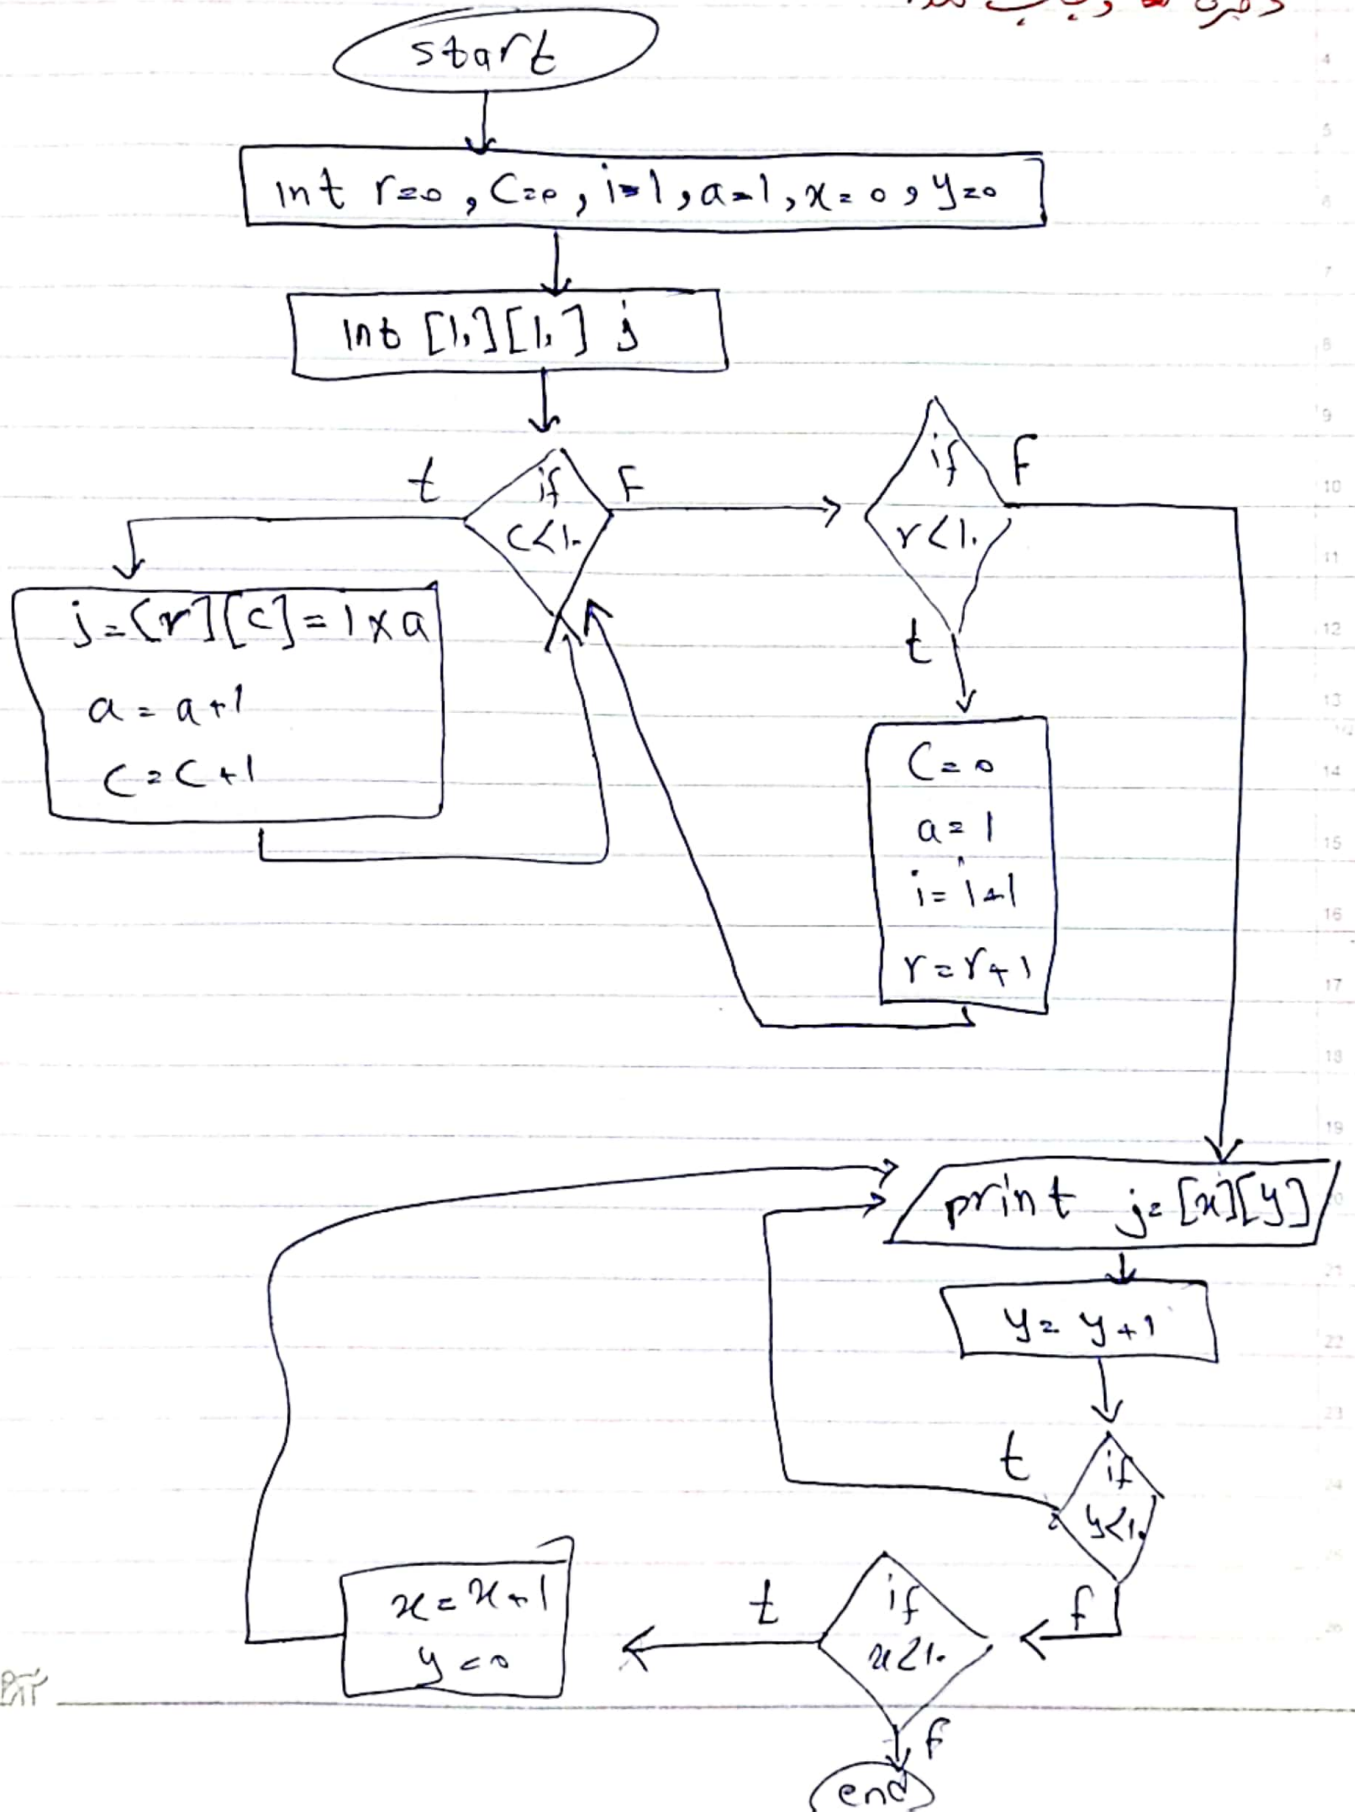 ذخیره
start
int r=0, C=0, i=1, a=1, x=0, y=0
int [1.][1.] j
t
if
c<1.
F
if
r<1.
F
j=[r][c]=1×a
a=a+1
c=c+1
t
C=0
a=1
i=i+1
r=r+1
print j=[x][y]
y=y+1
t
if
y<1.
f
if
x<1.
t
x=x+1
y=0
f
end
4
5
6
7
8
9
10
11
12
13
14
15
16
17
18
19
20
21
22
23
24
25
26